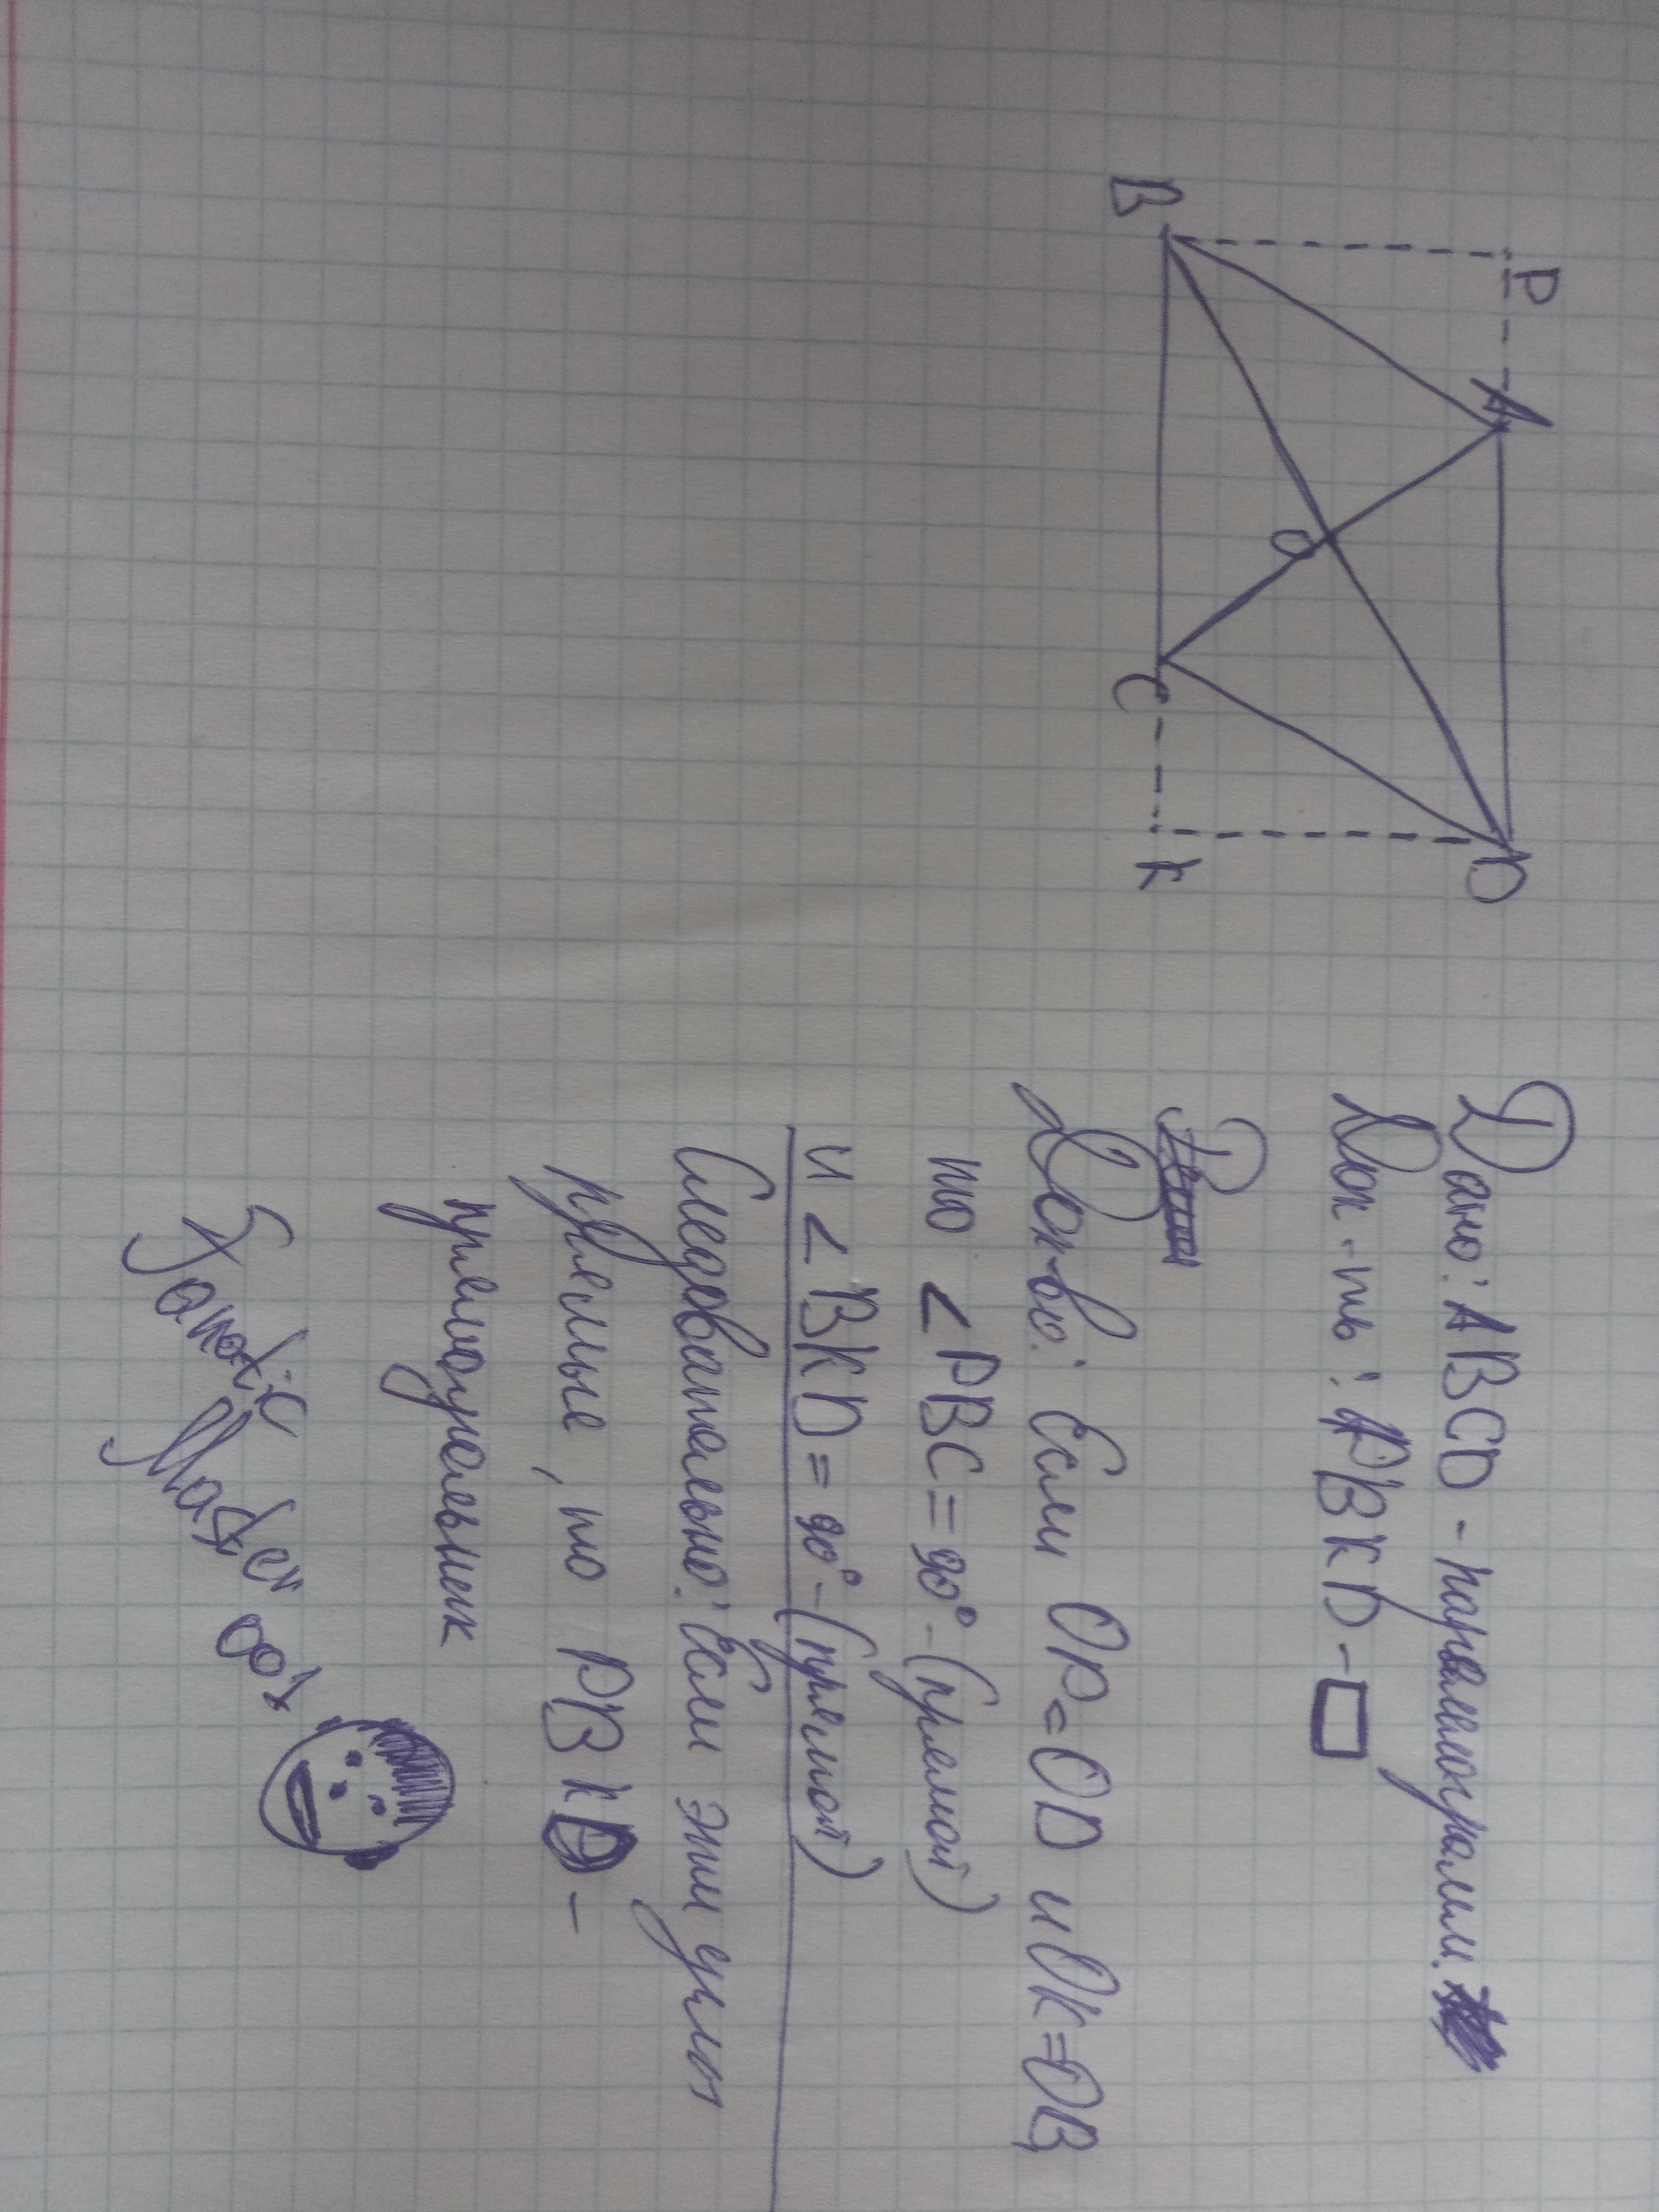 P
A
D
O
B
C
K
Дано: ABCD - параллелограмм.
Док-ть: PBKD - □
Док-во: Если OP=OD и OK=OB,
то ∠PBC=90° - (прямой)
и ∠BKD=90° - (прямой)
Следовательно: Если эти углы
прямые, то PBKD -
прямоугольник